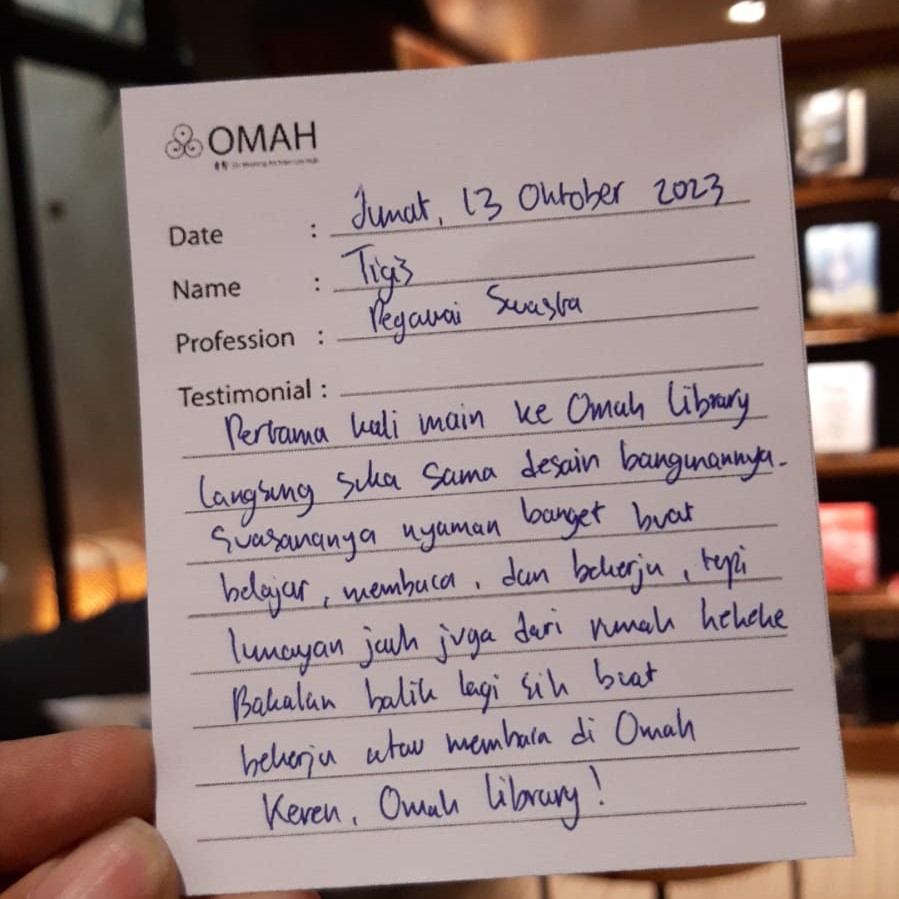 OMAH
Date : Jumat, 13 Oktober 2023
Name : Tigs
Profession : Pegawai Swasta
Testimonial :
Pertama kali main ke Omah library
langsung suka sama desain bangunannya.
Suasananya nyaman banget buat
belajar, membaca, dan bekerja, tapi
lumayan jauh juga dari rumah hehehe
Bakalan balik lagi sih buat
bekerja atau membaca di Omah
Keren, Omah library!